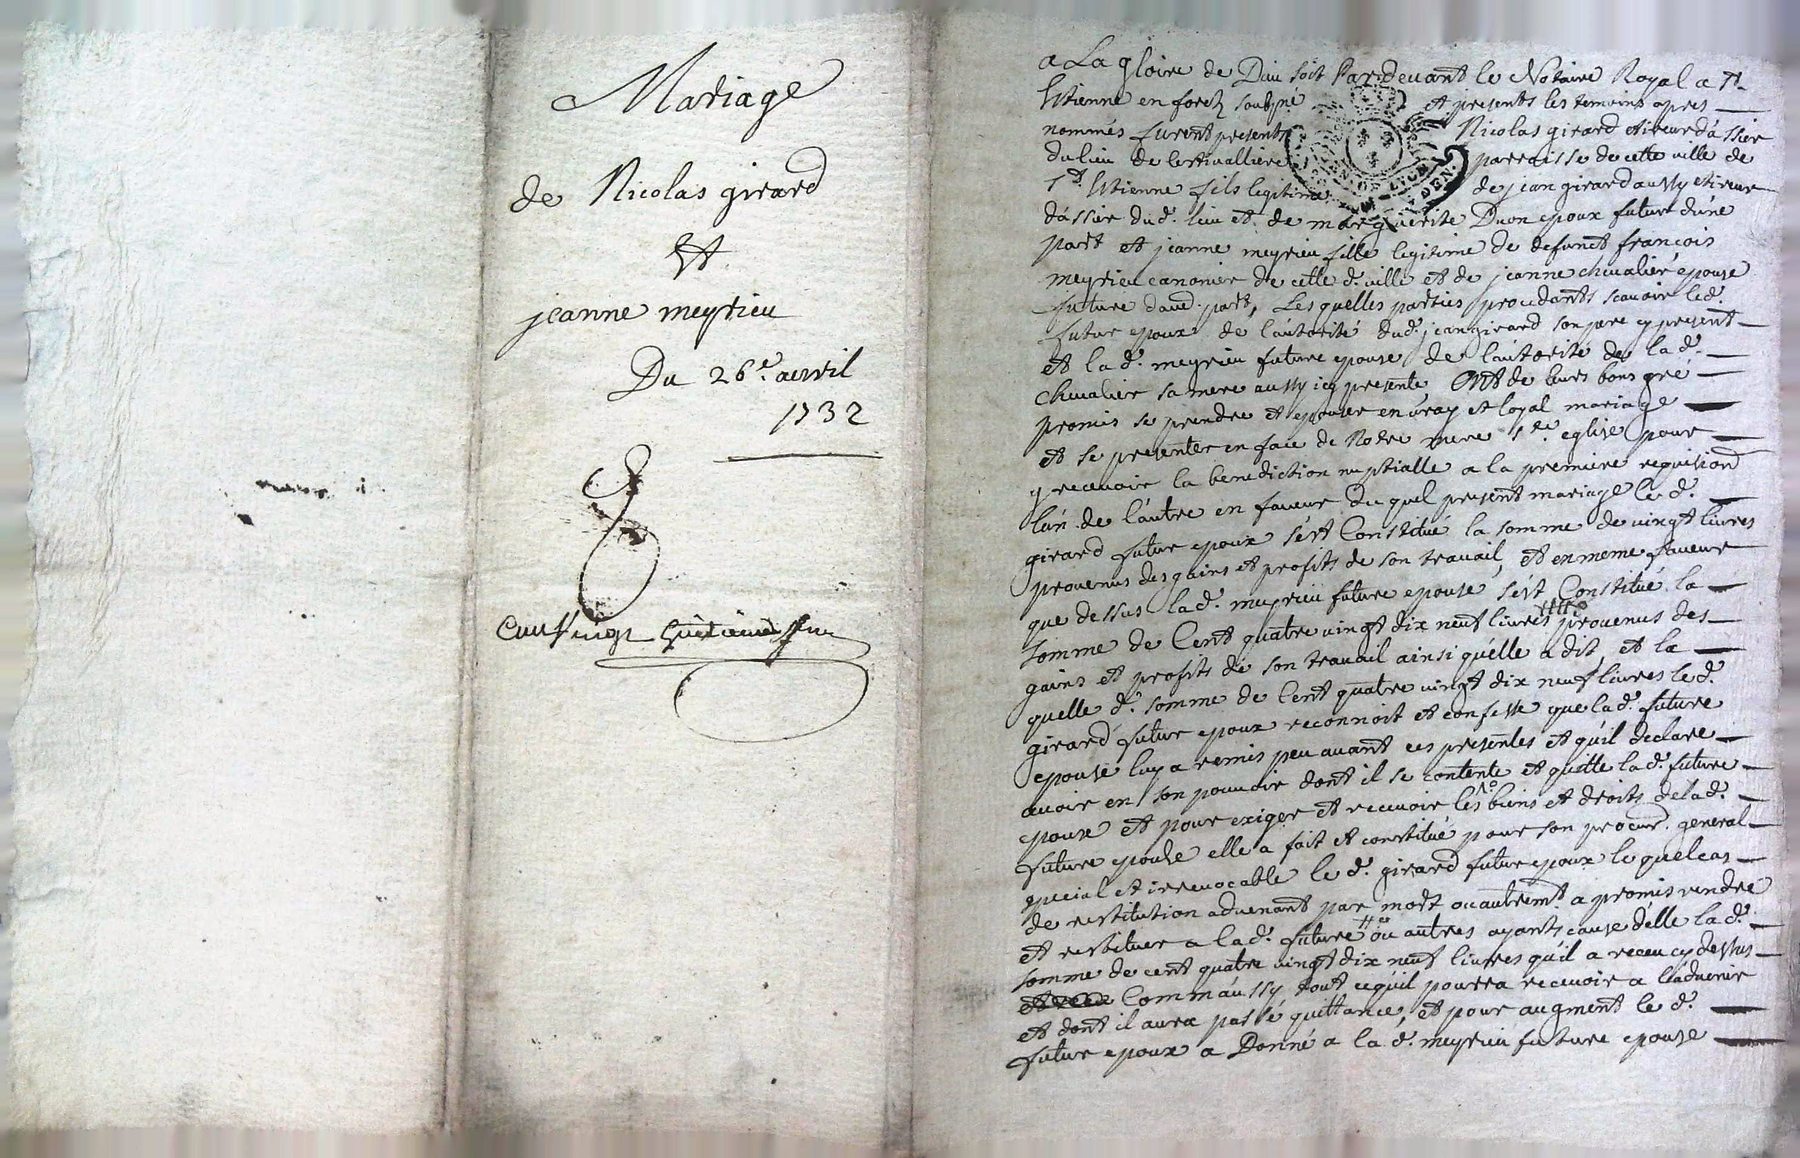 Mariage
de Nicolas girard
Et
jeanne meyrieu
Du 26e. avvril
1732
a La gloire de Dieu soit Pardevant le Notaire Royal a St.
Estienne en forez soubné et presents les temoins apres
nommés furent presents Nicolas girard etireur d'assier
du lieu de parroisse de cette ville de
St. Estienne fils legitime de jean girard aussy etireur
d'assier dud. lieu et de marguerite Duon epoux futur d'une
part et jeanne meyrieu fille legitime de defunct françois
meyrieu canonier de cette d. ville et de jeanne chevalier epouse
future d'aue. part, Les quelles parties procedants scavoir led.
futur epoux de l'autorité dud. jean girard son pere cy present
et la d. meyrieu future epouse de l'autorité de la d.
chevalier sa mere aussy icy presente Ont de leurs bons gré
promis se prendre et epouser en vray et loyal mariage
et se presenter en face de Notre mere Ste. eglise pour
y recevoir la benediction nuptialle a la premiere requisition
l'un de l'autre en faveur du quel present mariage le d.
girard futur epoux s'est Constitué la somme de vingt livres
provenus des gains et profits de son travail, et en meme faveur
que dessus la d. meyrieu future epouse s'est Constitué la
somme de Cent quatre vingt dix neuf livres provenus des
gains et profits de son travail ainsi qu'elle a dit, et la
quelle d. somme de Cent quatre vingt dix neuf livres le d.
girard futur epoux reconnoit et confesse que la d. future
epouse luy a remis peu avant ces presentes et qu'il declare
avoir en son pouvoir dont il se contente et quitte la d. future
epouse et pour exiger et recevoir les biens et droits de la d.
future epouse elle a fait et constitué pour son procur. general
special et irrevocable le d. girard futur epoux le quel cas
de restitution advenant par mort ou autremt a promis rendre
et restituer a la d. future ou autres ayants cause d'elle la d.
somme de cent quatre vingt dix neuf livres qu'il a receu cy dessus
Comm'aussy tout ce qu'il pourra recevoir a l'advenir
et dont il aura passé quittance, et pour augment le d.
futur epoux a Donné a la d. meyrieu future epouse